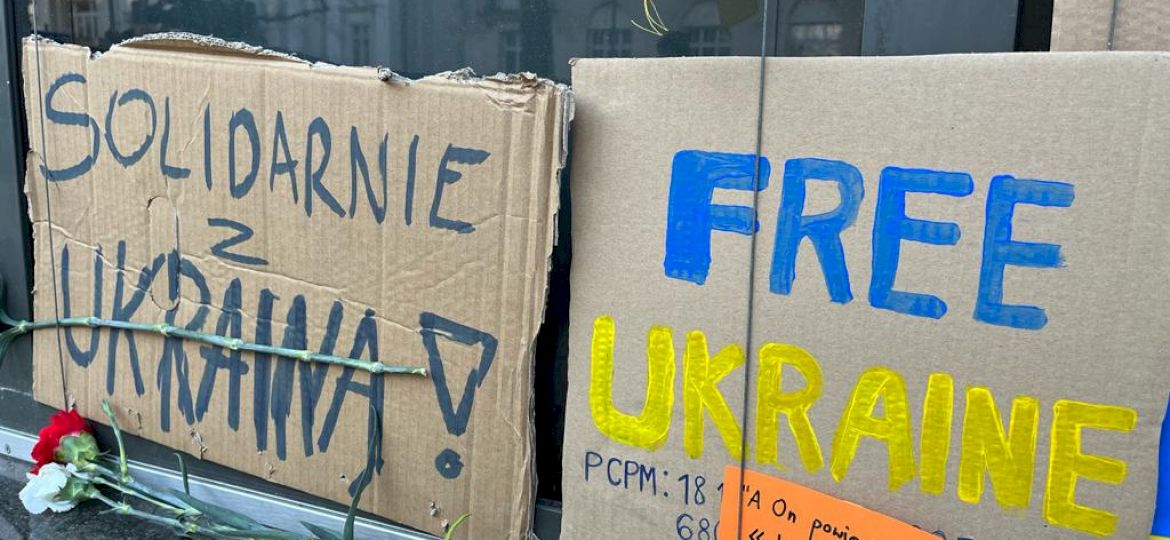 SOLIDARNIE
Z
UKRAINĄ!
FREE
UKRAINE
PCPM: 18 1
68
"A On powie